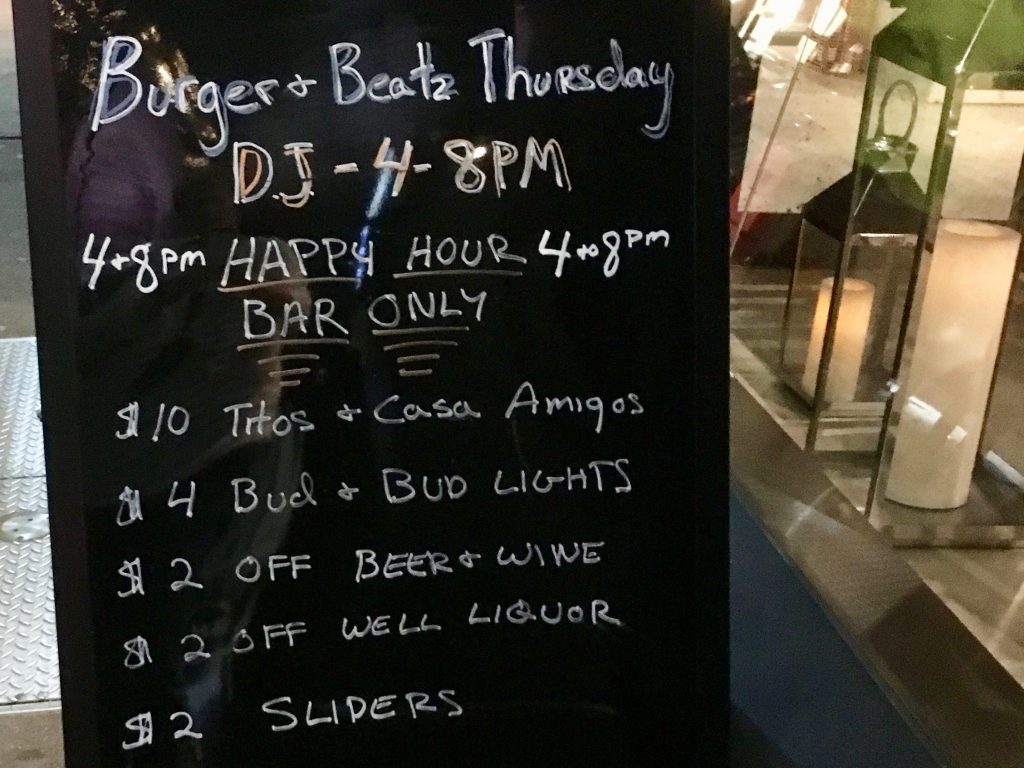 Burger + Beatz Thursday
DJ - 4 - 8PM
4+8pm HAPPY HOUR 4to8pm
BAR ONLY
$10 Titos + Casa Amigos
$4 Bud + BUD LIGHTS
$2 OFF BEER + WINE
$2 OFF WELL LIQUOR
$2 SLIDERS